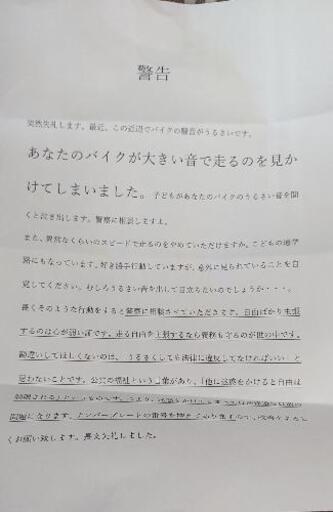 警告
突然失礼します。最近、この近辺でバイクの騒音がうるさいです。
あなたのバイクが大きい音で走るのを見か
けてしまいました。子どもがあなたのバイクのうるさい音を聞
くと泣き出します。警察に相談しますよ。
また、異常なくらいのスピードで走るのをやめていただけますか。こどもの通学
路にもなっています。好き勝手行動していますが、意外に見られていることを自
覚してください。むしろうるさい音を出して目立ちたいのでしょうか・・・。
長くそのような行動をすると警察に相談させていただきます。自由ばかり主張
するのは心が弱い証です。走る自由を主張するなら義務も守るのが世の中です。
勘違いしてほしくないのは、うるさくしても法律に違反してなければいい
思わないことです。公共の福祉という言葉があり、「他に迷惑をかけると自由は
制限される
になります。ナンバープレートの番号を
くお願い致します。長文失礼しました。